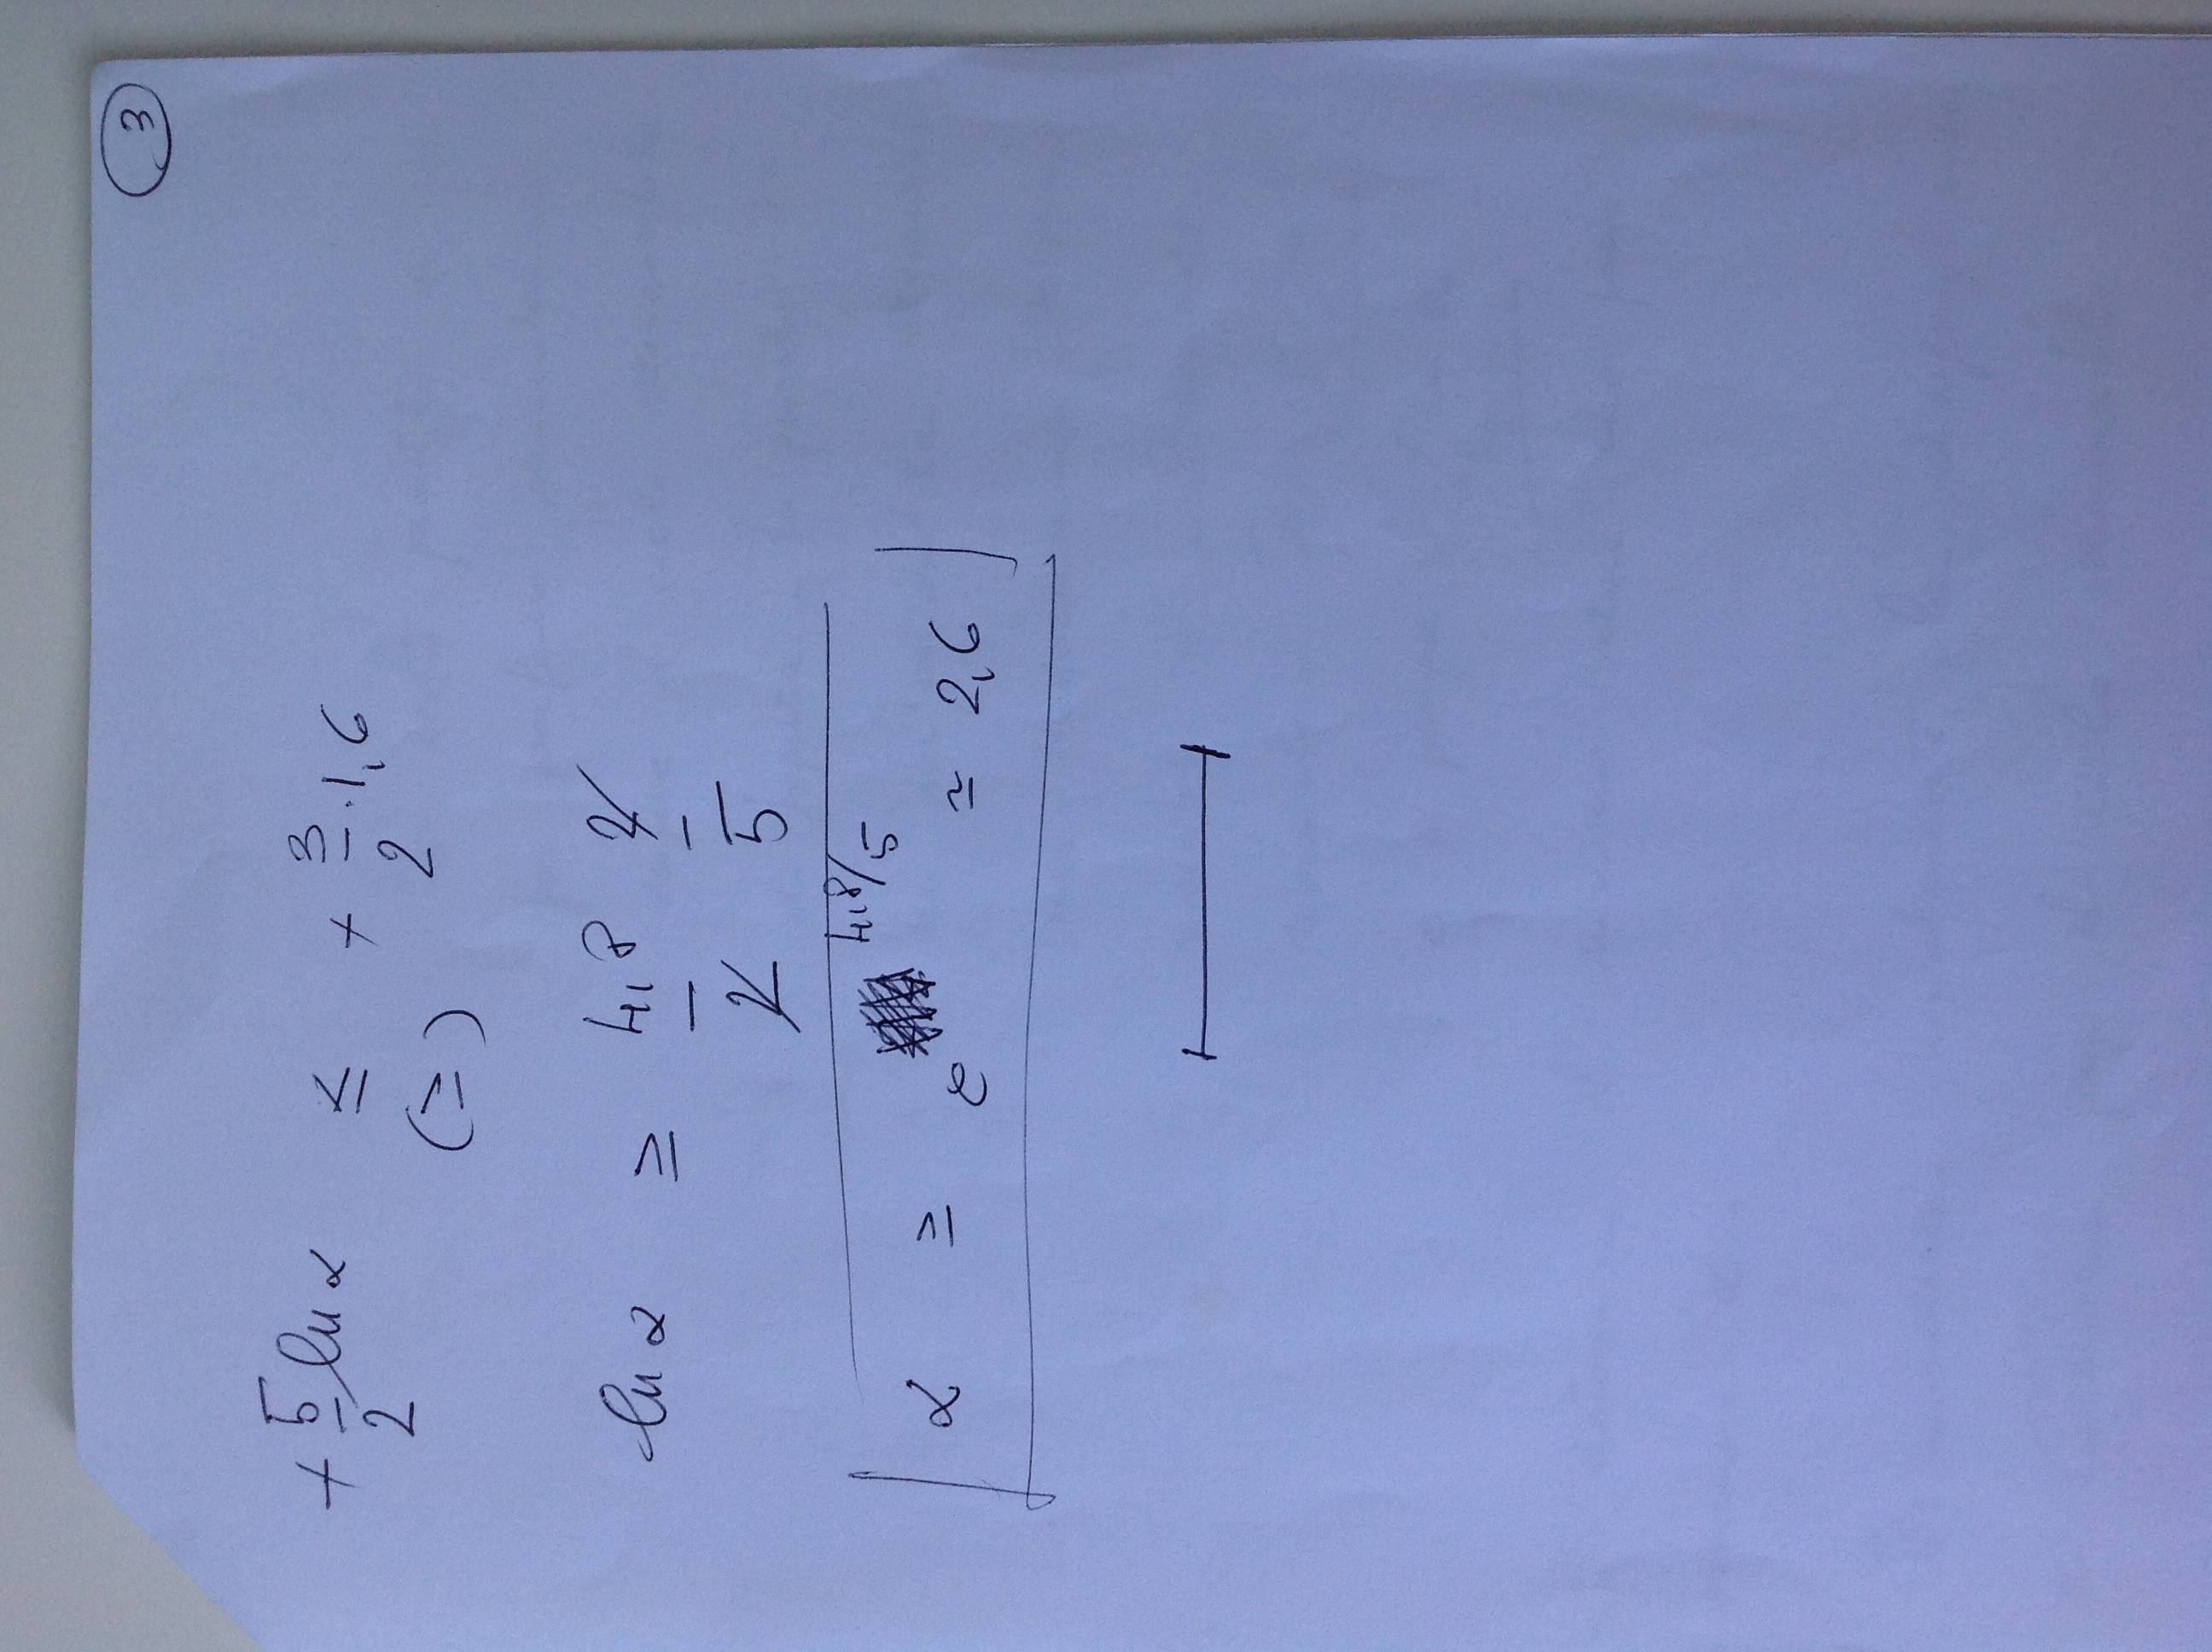 3
+ 5/2 ln α ≤ + 3/2 · 1,6
(≥)
ln α ≥ 4,8/2 2/5
α ≥ e^4,8/5 ≃ 2,6